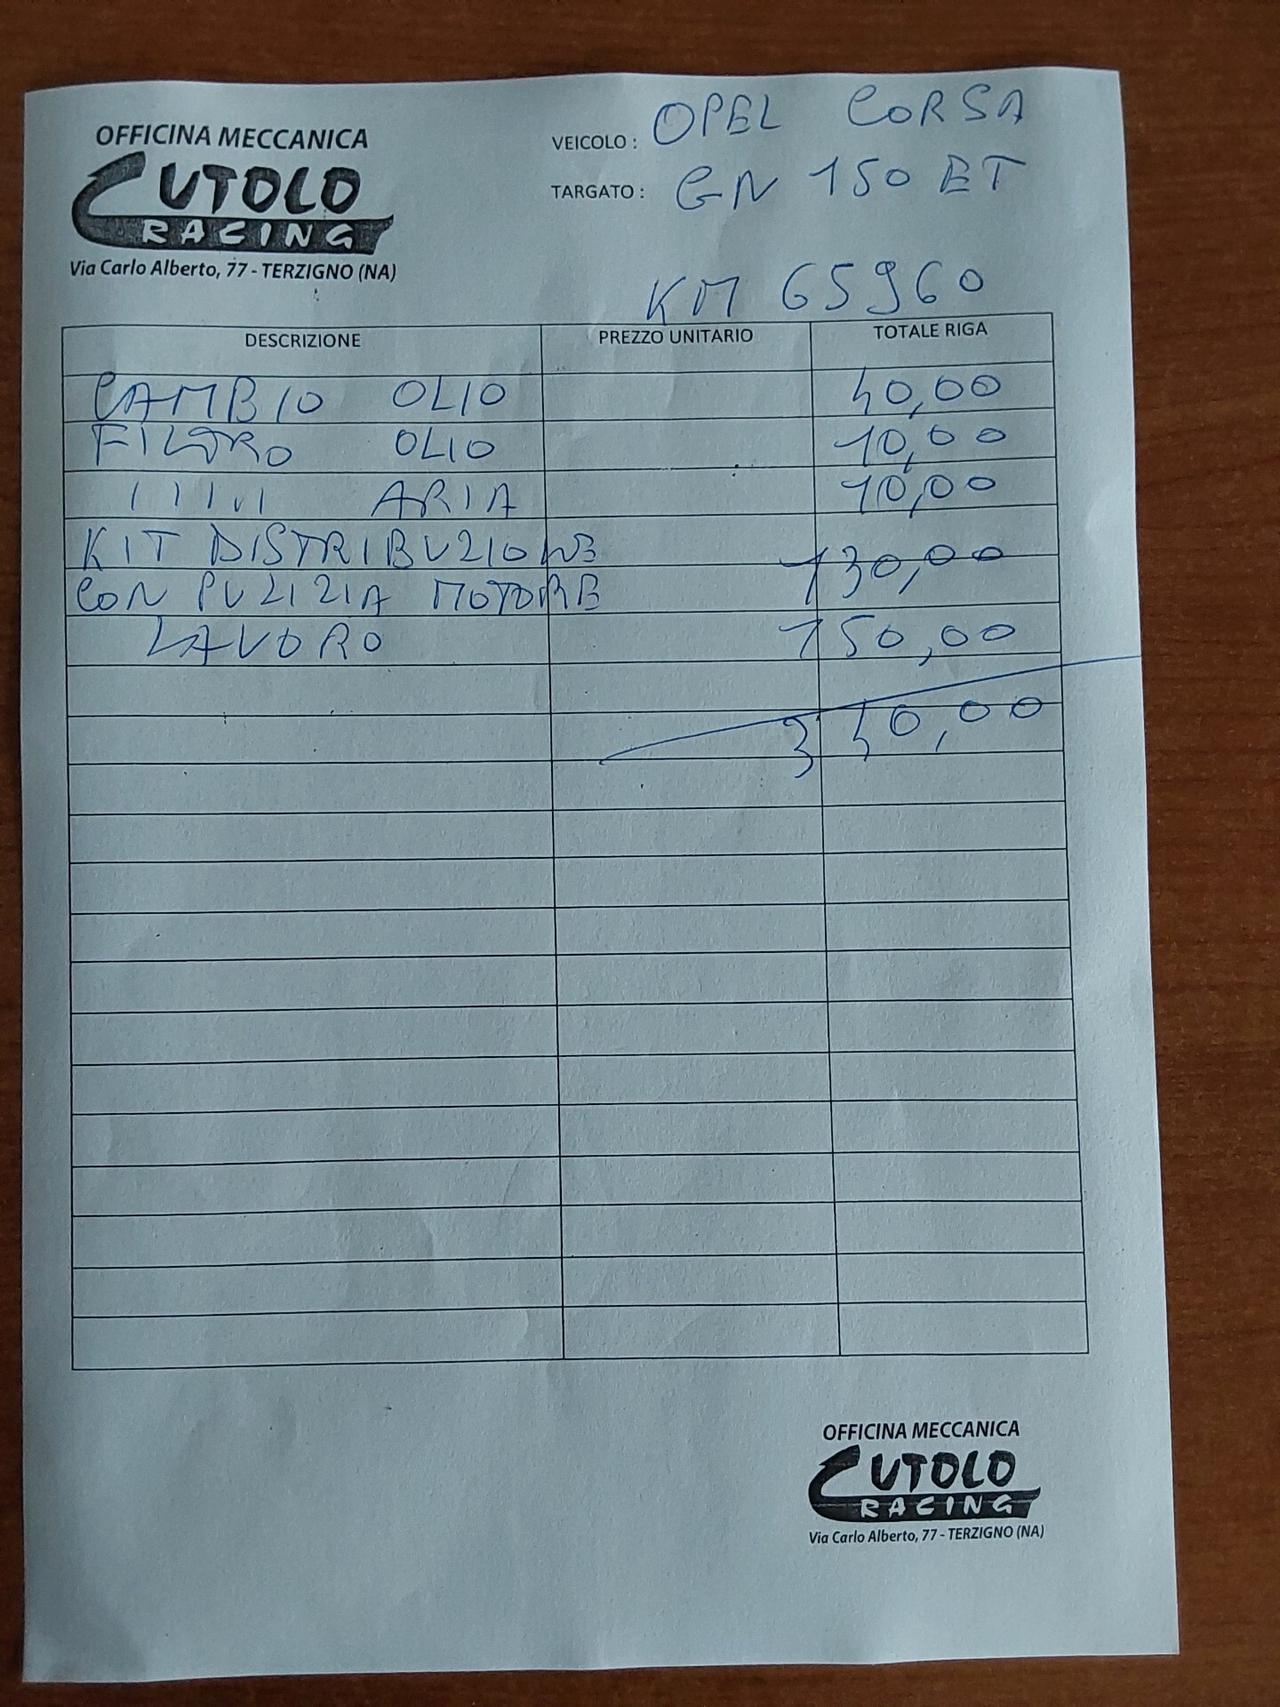 OFFICINA MECCANICA
CUTOLO
RACING
Via Carlo Alberto, 77 - TERZIGNO (NA)
VEICOLO : OPEL CORSA
TARGATO : GN 150 ET
KM 65960
DESCRIZIONE PREZZO UNITARIO TOTALE RIGA
CAMBIO OLIO 40,00
FILTRO OLIO 10,00
ARIA 10,00
KIT DISTRIBUZIONE
CON PULIZIA MOTORE 130,00
LAVORO 150,00
340,00
OFFICINA MECCANICA
CUTOLO
RACING
Via Carlo Alberto, 77 - TERZIGNO (NA)